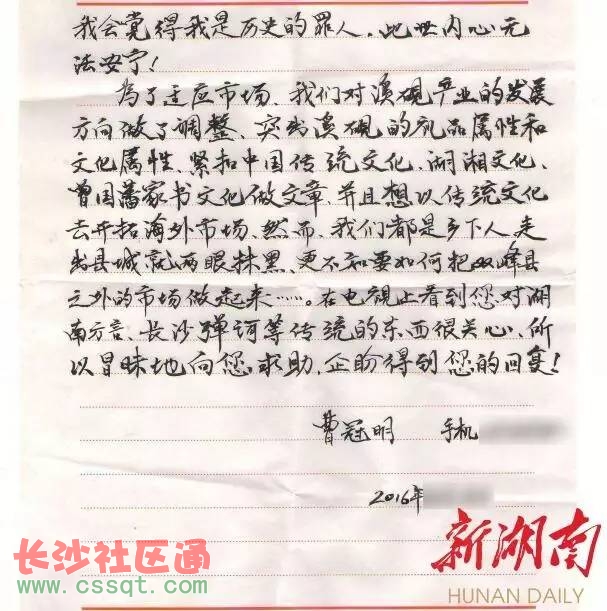 我会觉得我是历史的罪人，此世内心无
法安宁！
为了适应市场、我们对溪砚产业的发展
方向做了调整、突出溪砚的礼品属性和
文化属性、紧扣中国传统文化、湖湘文化、
曾国藩家书文化做文章、并且想以传统文化
去开拓海外市场、然而、我们都是乡下人走
出县城就两眼抹黑、更不知要如何把双峰县
之外的市场做起来……。在电视上看到您对湖
南方言、长沙弹词等传统的东西很关心、所
以冒昧地向您求助、企盼得到您的回复！
曹冠明 手机
2016年
长沙社区通
www.cssqt.com
新湖南
HUNAN DAILY